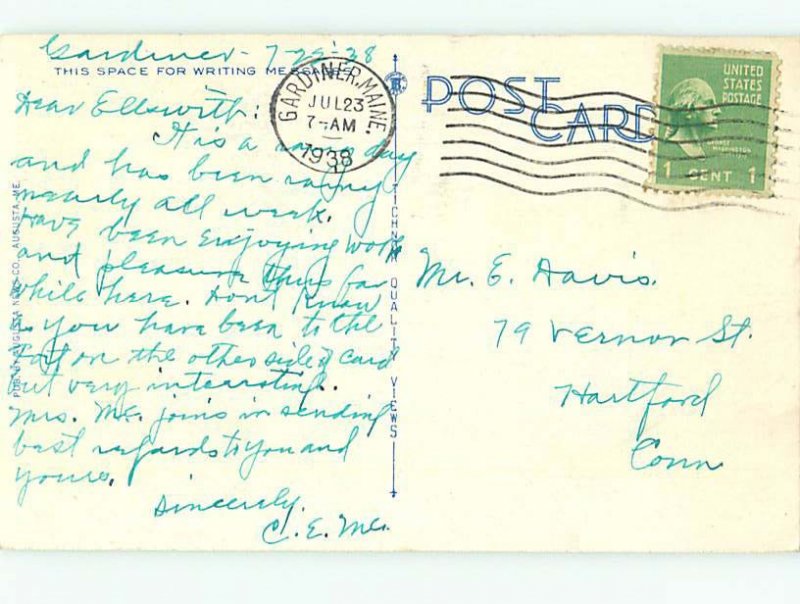 Gardiner - 7-22-38
THIS SPACE FOR WRITING MESSAGES
Dear Ellswith:
It is a day
and has been rainy
nearly all week.
Have been enjoying work
and pleasure thus far
while here. Don't know
if you have been to the
Fort on the other side of card
but very interesting.
Mrs. Mc. joins in sending
best regards to you and
yours.
Sincerely.
C. E. Mc.
PUB. BY AUGUSTA NEWS CO., AUGUSTA, ME.
TICHNOR QUALITY VIEWS
GARDINER, MAINE.
JUL 23
7-AM
1938
POST
CARD
UNITED
STATES
POSTAGE
GEORGE
WASHINGTON
1 CENT 1
Mr. E. Davis.
79 Vernon St.
Hartford
Conn